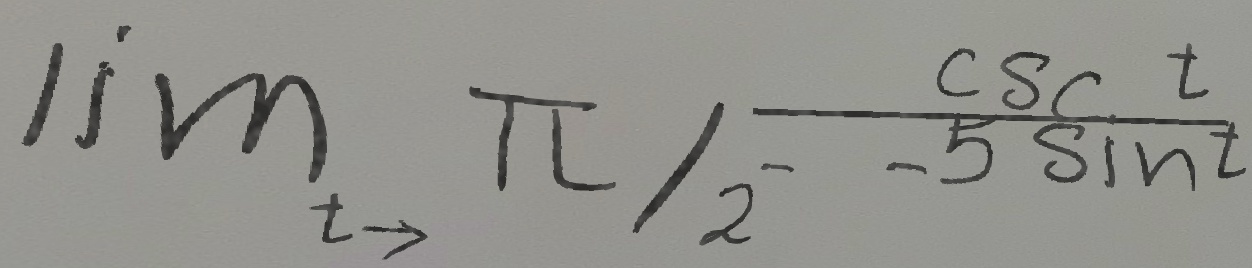 \lim_{t \to \pi/2^-} \frac{\csc t}{-5 \sin t}